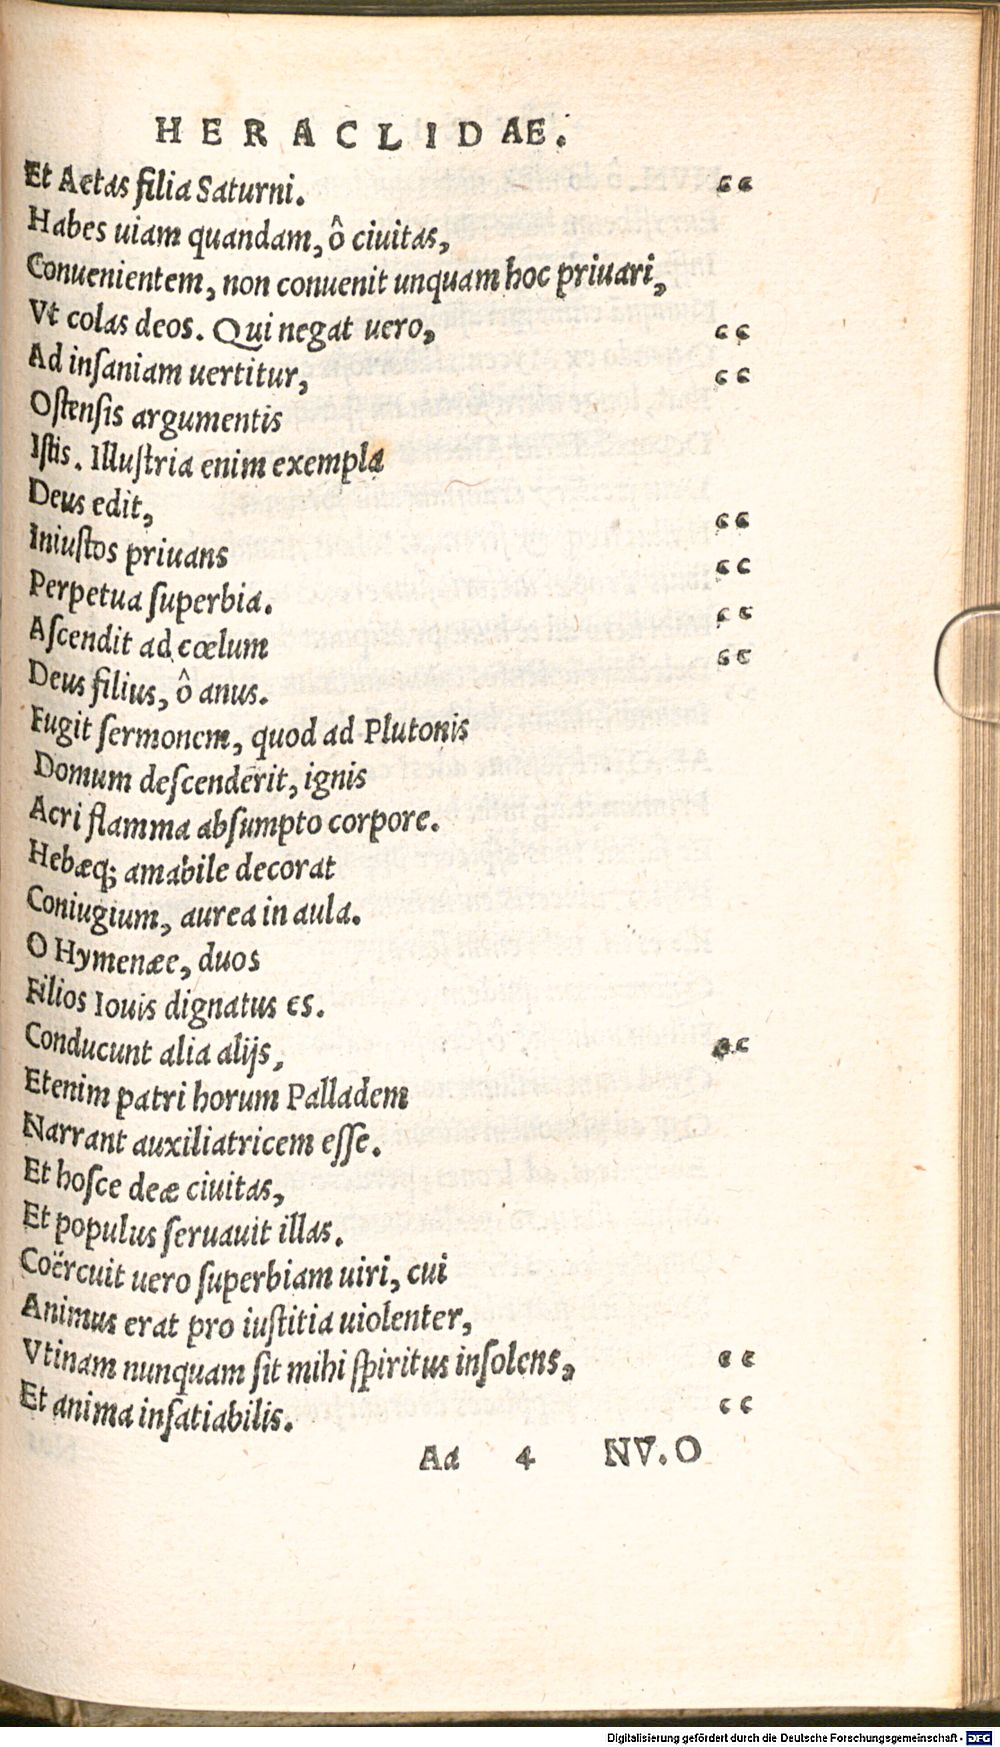 HERACLIDAE.
Et Aetas filia Saturni. “
Habes uiam quandam, ô ciuitas,
Conuenientem, non conuenit unquam hoc priuari,
Vt colas deos. Qui negat uero, “
Ad insaniam uertitur, “
Ostensis argumentis
Istis. Illustria enim exempla
Deus edit, “
Iniustos priuans “
Perpetua superbia. “
Ascendit ad cœlum “
Deus filius, ô anus.
Fugit sermonem, quod ad Plutonis
Domum descenderit, ignis
Acri flamma absumpto corpore.
Hebæq; amabile decorat
Coniugium, aurea in aula.
O Hymenæe, duos
Filios Iouis dignatus es.
Conducunt alia alijs, “
Etenim patri horum Palladem
Narrant auxiliatricem esse.
Et hosce deæ ciuitas,
Et populus seruauit illas.
Coërcuit uero superbiam uiri, cui
Animus erat pro iustitia uiolenter,
Vtinam nunquam sit mihi spiritus insolens, “
Et anima insatiabilis. “
Aa 4 NV. O
Digitalisierung gefördert durch die Deutsche Forschungsgemeinschaft - DFG